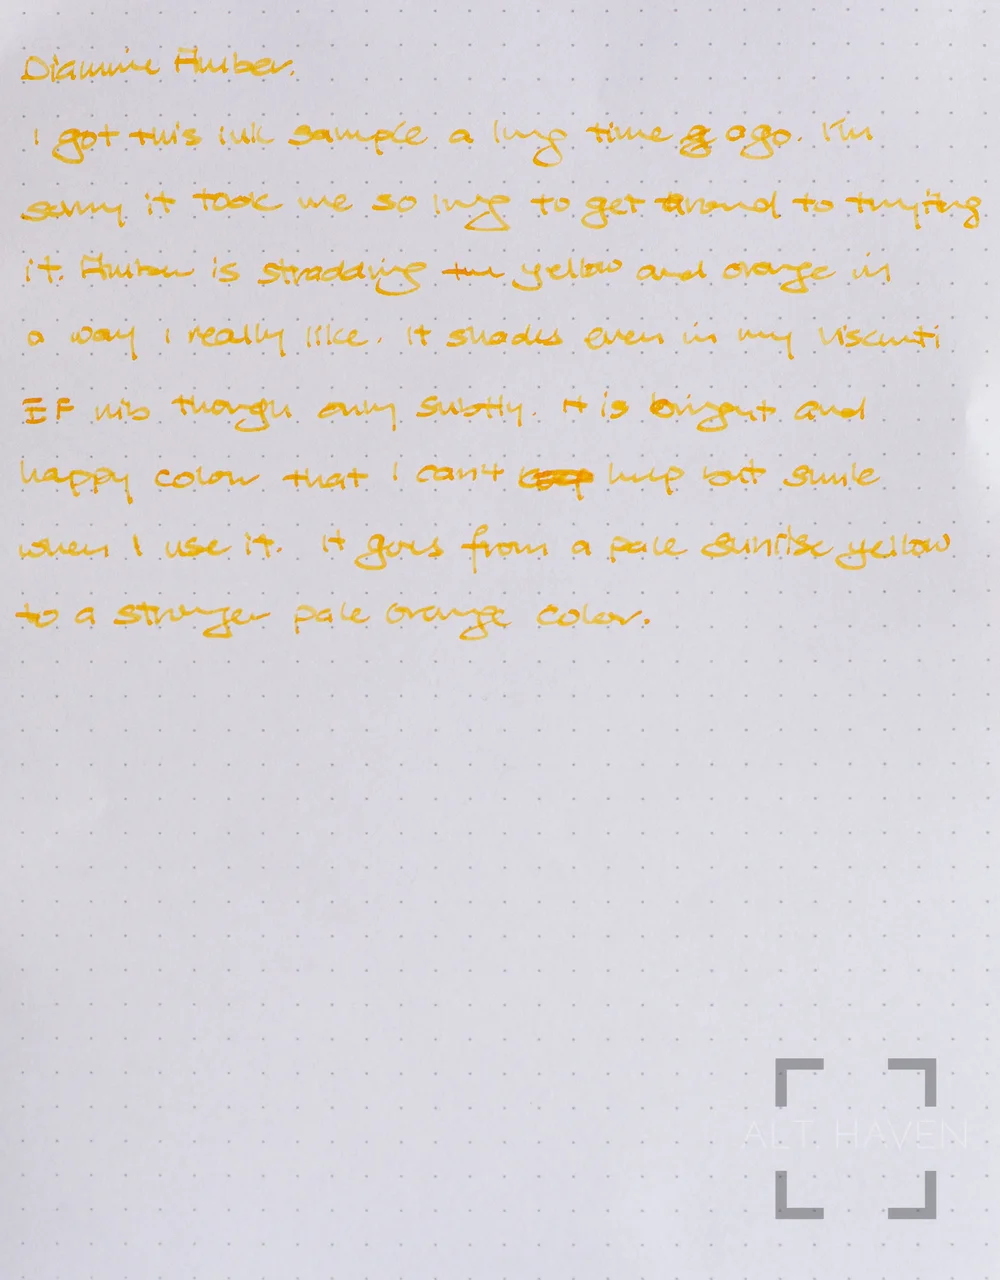 Diamine Amber.
I got this ink sample a long time ago. I'm
sorry it took me so long to get around to trying
it. Amber is straddling the yellow and orange in
a way I really like. It shades even in my Visconti
EF nib though only subtly. It is bright and
happy color that I can't help but smile
when I use it. It goes from a pale sunrise yellow
to a stronger pale orange color.
ALT. HAVEN